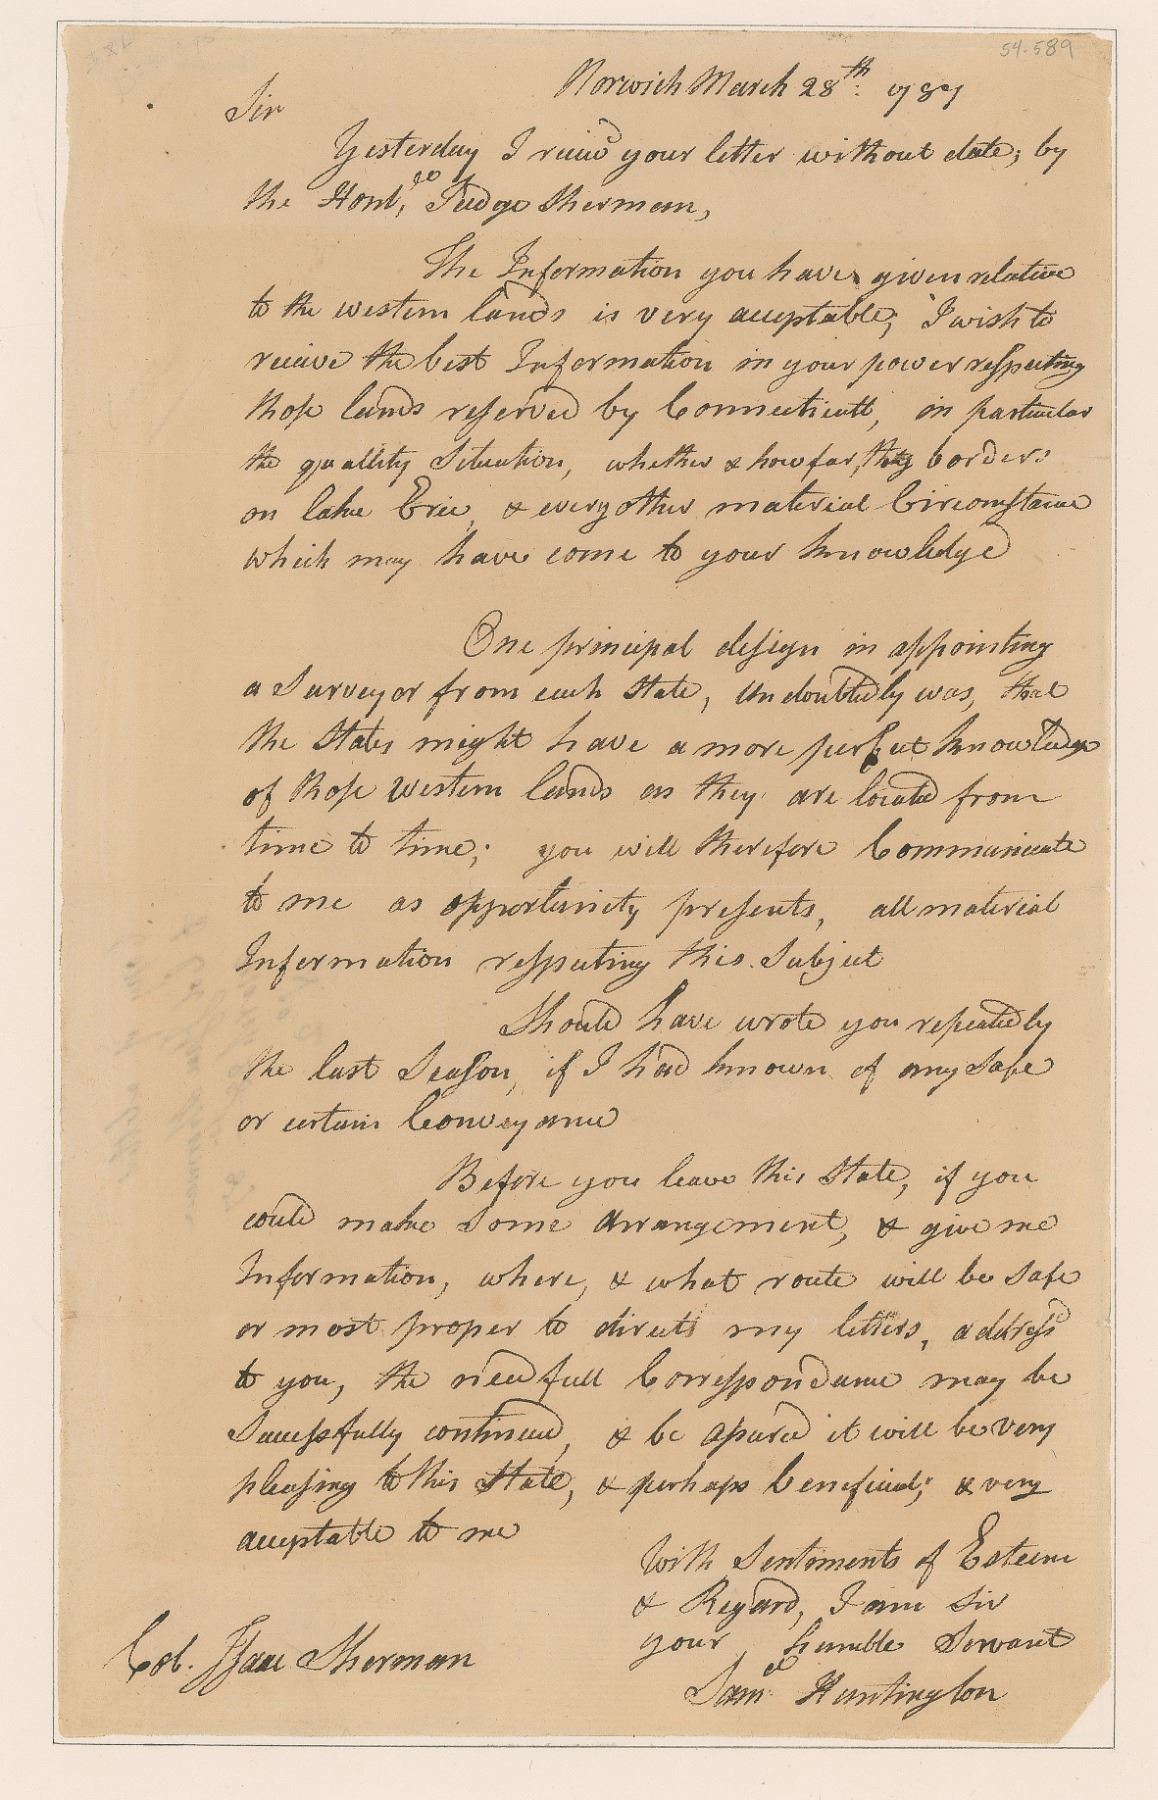 54.589
Norwich March 28th: 1787
Sir
Yesterday I reciv'd your letter without date; by
the Honble Judge Sherman,
The Information you have given relative
to the western lands is very acceptable; I wish to
recieve the best Information in your power respecting
those lands reserved by Connecticutt, in particular
the quallity Situation, whether & how far, they borders
on lake Erie, & every other material Circumstance
which may have come to your knowledge
One principal design in appointing
a Surveyor from each State, Undoubtedly was, that
the States might have a more perfect knowledge
of those western lands as they are located from
time to time; you will therefore Communicate
to me as opportunity presents, all material
Information respecting this Subject
Should have wrote you repeatedly
the last Season, if I had known of any Safe
or certain Conveyance
Before you leave this State, if you
could make Some Arrangement, & give me
Information, where, & what route will be Safe
or most proper to direct my letters, address'd
to you, the needfull Correspondance may be
Successfully continued, & be assured it will be very
pleasing to this State, & perhaps beneficial; & very
acceptable to me
With Sentiments of Esteem
& Regard, I am Sir
your humble Servant
Saml Huntington
Col. Isaac Sherman